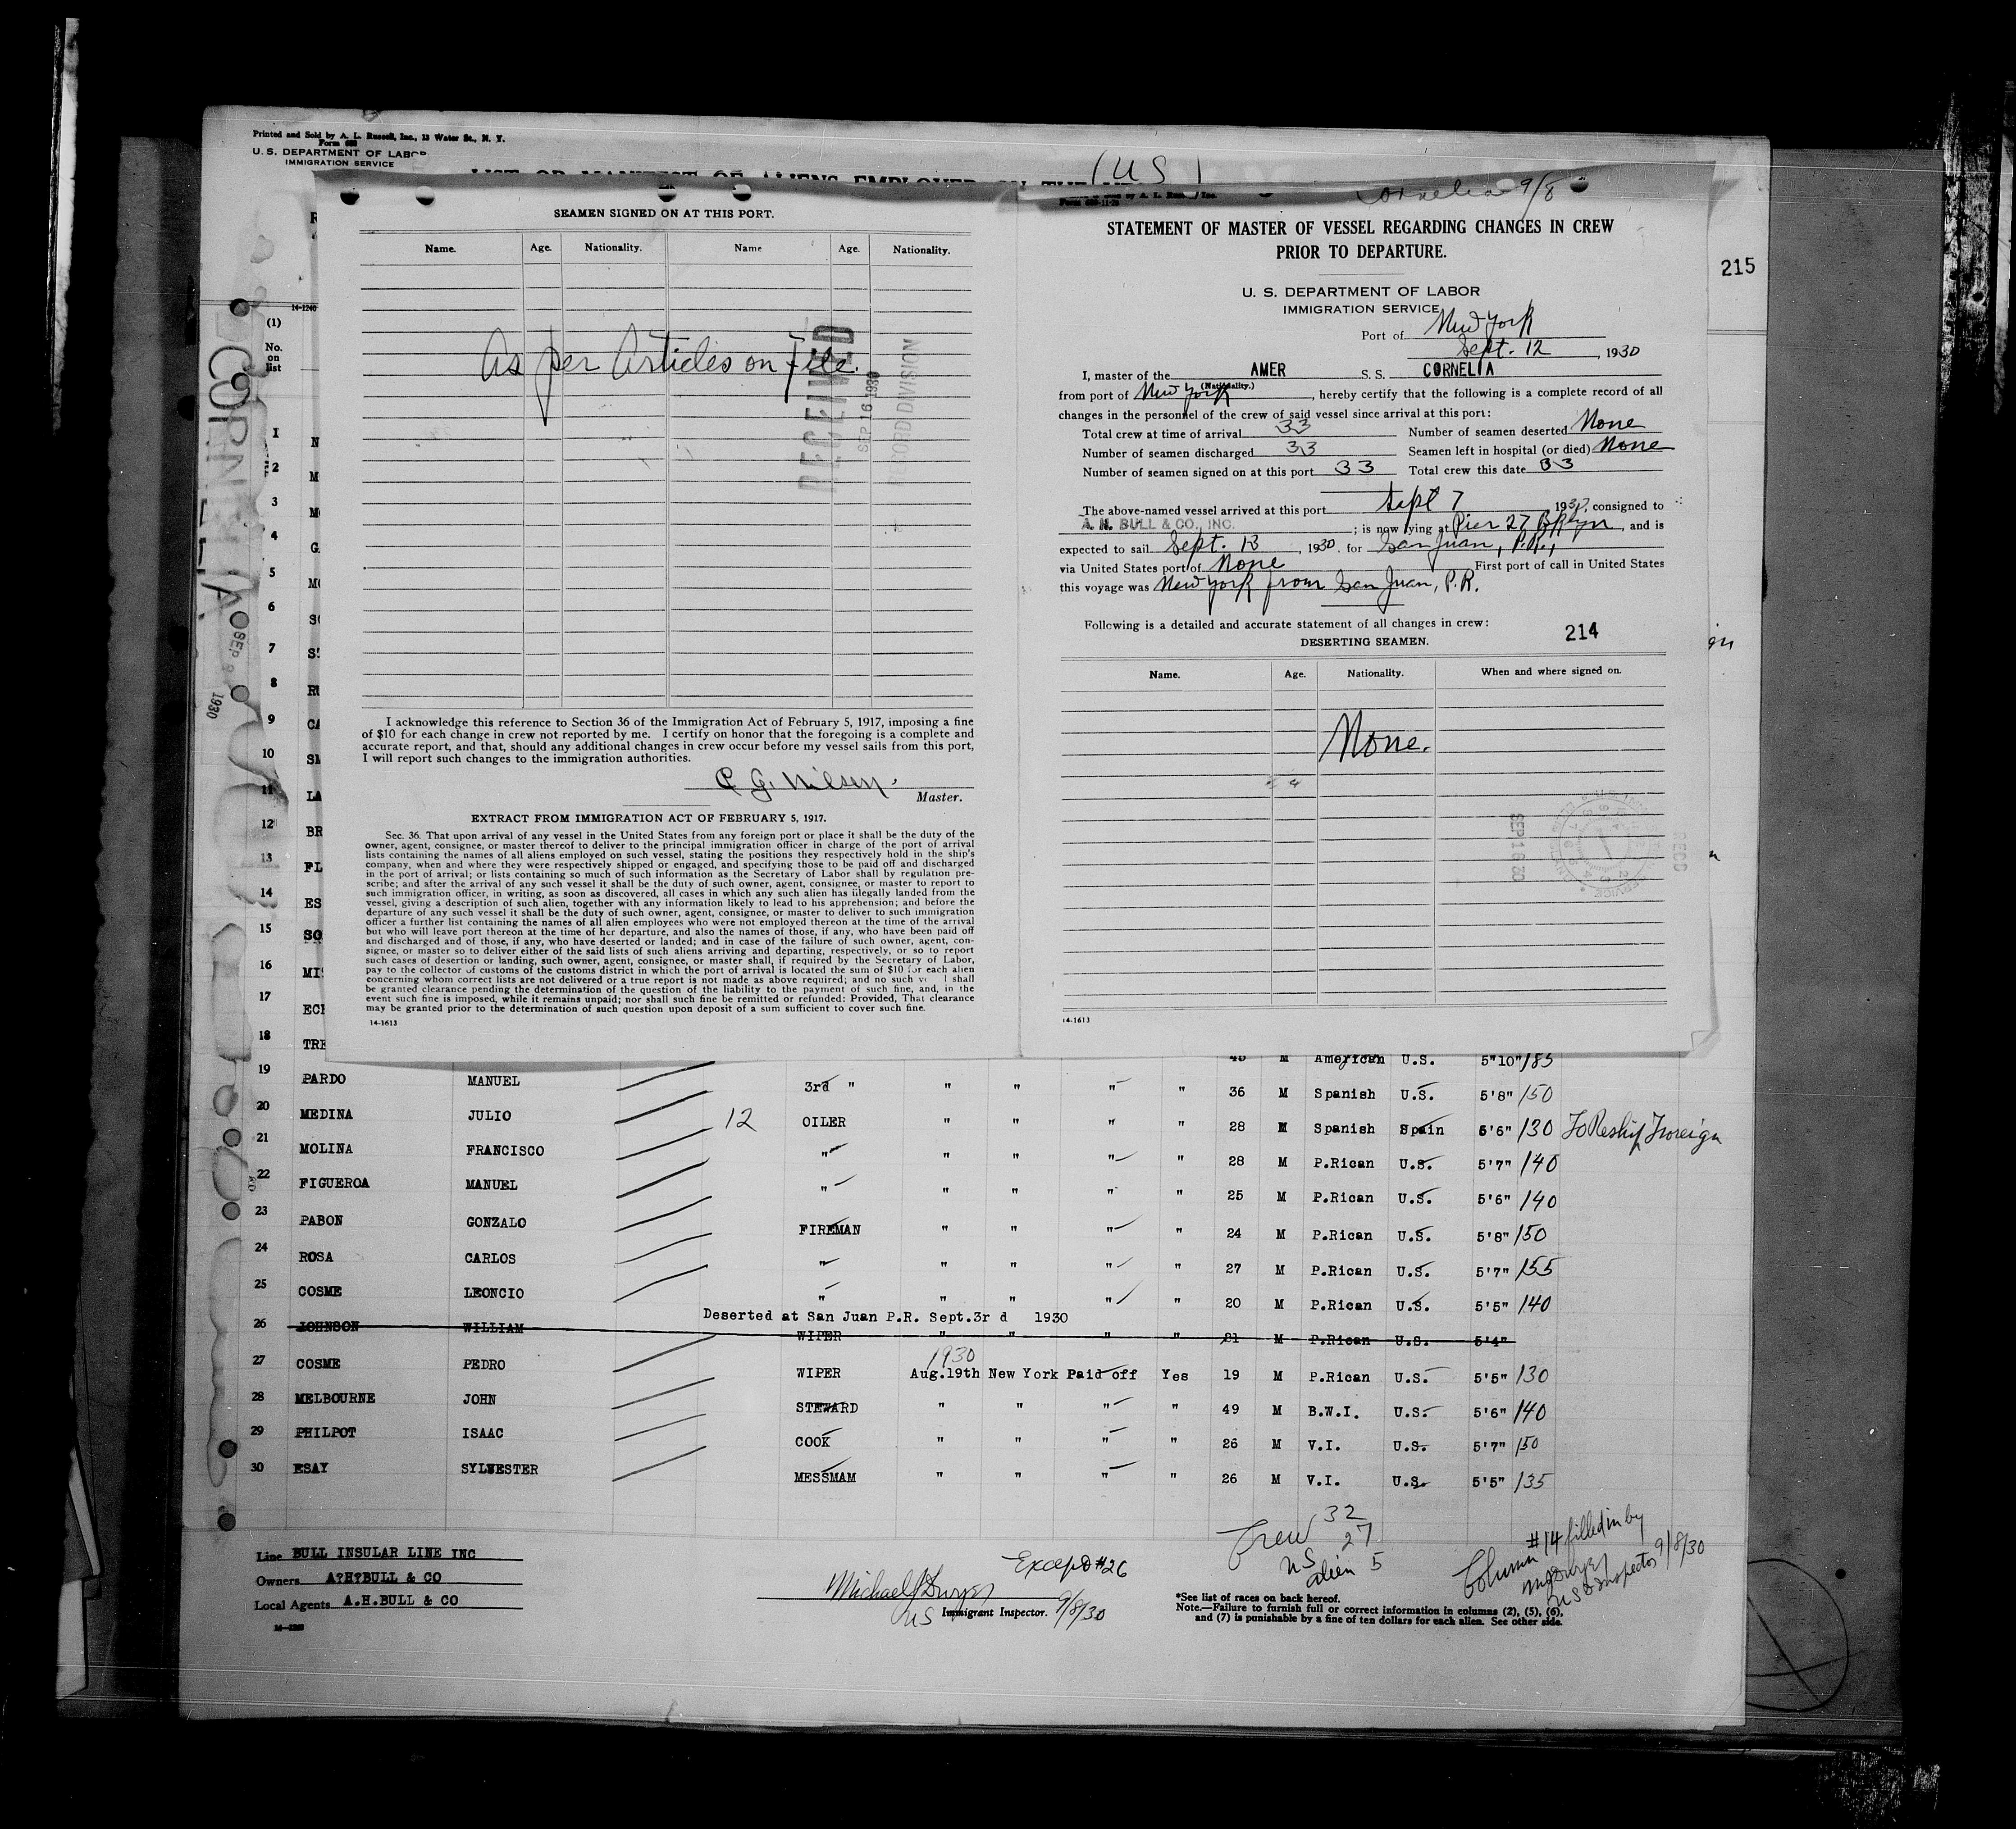 Printed and Sold by A. L. Russell, Inc., 13 Water St., N. Y.
Form 680
U. S. DEPARTMENT OF LABOR
IMMIGRATION SERVICE
(US)
Cornelia 9/8
215
14-1240
(1)
No.
on
list
CORNELIA
SEP 9 1930
SEAMEN SIGNED ON AT THIS PORT.
Name. Age. Nationality. Name Age. Nationality.
As per Articles on file.
RECEIVED
SEP 16 1930
RECORD DIVISION
I acknowledge this reference to Section 36 of the Immigration Act of February 5, 1917, imposing a fine
of $10 for each change in crew not reported by me. I certify on honor that the foregoing is a complete and
accurate report, and that, should any additional changes in crew occur before my vessel sails from this port,
I will report such changes to the immigration authorities.
C. G. Nilsen
Master.
EXTRACT FROM IMMIGRATION ACT OF FEBRUARY 5, 1917.
Sec. 36. That upon arrival of any vessel in the United States from any foreign port or place it shall be the duty of the
owner, agent, consignee, or master thereof to deliver to the principal immigration officer in charge of the port of arrival
lists containing the names of all aliens employed on such vessel, stating the positions they respectively hold in the ship's
company, when and where they were respectively shipped or engaged, and specifying those to be paid off and discharged
in the port of arrival; or lists containing so much of such information as the Secretary of Labor shall by regulation pre-
scribe; and after the arrival of any such vessel it shall be the duty of such owner, agent, consignee, or master to report to
such immigration officer, in writing, as soon as discovered, all cases in which any such alien has illegally landed from the
vessel, giving a description of such alien, together with any information likely to lead to his apprehension; and before the
departure of any such vessel it shall be the duty of such owner, agent, consignee, or master to deliver to such immigration
officer a further list containing the names of all alien employees who were not employed thereon at the time of the arrival
but who will leave port thereon at the time of her departure, and also the names of those, if any, who have been paid off
and discharged and of those, if any, who have deserted or landed; and in case of the failure of such owner, agent, con-
signee, or master so to deliver either of the said lists of such aliens arriving and departing, respectively, or so to report
such cases of desertion or landing, such owner, agent, consignee, or master shall, if required by the Secretary of Labor,
pay to the collector of customs of the customs district in which the port of arrival is located the sum of $10 for each alien
concerning whom correct lists are not delivered or a true report is not made as above required; and no such v l shall
be granted clearance pending the determination of the question of the liability to the payment of such fine, and, in the
event such fine is imposed, while it remains unpaid; nor shall such fine be remitted or refunded: Provided, That clearance
may be granted prior to the determination of such question upon deposit of a sum sufficient to cover such fine.
14-1613
STATEMENT OF MASTER OF VESSEL REGARDING CHANGES IN CREW
PRIOR TO DEPARTURE.
U. S. DEPARTMENT OF LABOR
IMMIGRATION SERVICE
Port of New York
Sept. 12, 1930
I, master of the AMER S. S. CORNELIA
(Nationality.)
from port of New York, hereby certify that the following is a complete record of all
changes in the personnel of the crew of said vessel since arrival at this port:
Total crew at time of arrival 33 Number of seamen deserted None
Number of seamen discharged 33 Seamen left in hospital (or died) None
Number of seamen signed on at this port 33 Total crew this date 33
The above-named vessel arrived at this port Sept 7 1930, consigned to
A. H. BULL & CO., INC. ; is now lying at Pier 27 Bklyn, and is
expected to sail Sept. 13, 1930, for San Juan, P.R.,
via United States port of None First port of call in United States
this voyage was New York from San Juan, P.R.
Following is a detailed and accurate statement of all changes in crew:
214
DESERTING SEAMEN.
Name. Age. Nationality. When and where signed on.
None.
SEP 16 30
14-1613
1
2
3
4
5
6
7
8
9
10
11
12
13
14
15
16
17
18
American U.S. 5"10" 185
19 PARDO MANUEL 3rd " " " " " 36 M Spanish U.S. 5'8" 150
20 MEDINA JULIO 12 OILER " " " " 28 M Spanish Spain 5'6" 130 To Reship Foreign
21 MOLINA FRANCISCO " " " " " 28 M P.Rican U.S. 5'7" 140
22 FIGUEROA MANUEL " " " " " 25 M P.Rican U.S. 5'6" 140
23 PABON GONZALO FIREMAN " " " " 24 M P.Rican U.S. 5'8" 150
24 ROSA CARLOS " " " " " 27 M P.Rican U.S. 5'7" 155
25 COSME LEONCIO " " " " " 20 M P.Rican U.S. 5'5" 140
Deserted at San Juan P.R. Sept.3r d 1930
26 JOHNSON WILLIAM WIPER " " " " 21 M P.Rican U.S. 5'4"
1930
27 COSME PEDRO WIPER Aug.19th New York Paid off Yes 19 M P.Rican U.S. 5'5" 130
28 MELBOURNE JOHN STEWARD " " " " 49 M B.W.I. U.S. 5'6" 140
29 PHILPOT ISAAC COOK " " " " 26 M V.I. U.S. 5'7" 150
30 ESAY SYLVESTER MESSMAM " " " " 26 M V.I. U.S. 5'5" 135
Crew 32
US 27
alien 5
Line BULL INSULAR LINE INC
Owners A?H?BULL & CO
Local Agents A.H.BULL & CO
Except #26
US Immigrant Inspector. 9/8/30
Column #14 filled in by
US Inspector 9/8/30
*See list of races on back hereof.
Note.—Failure to furnish full or correct information in columns (2), (5), (6),
and (7) is punishable by a fine of ten dollars for each alien. See other side.